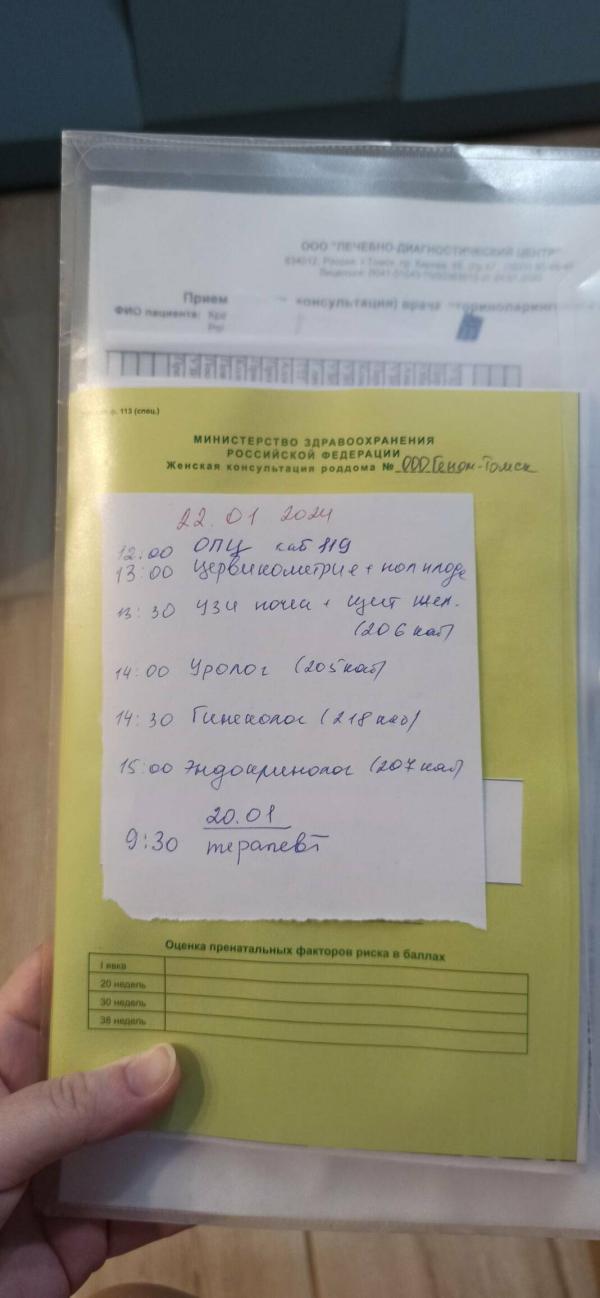 ООО "ЛЕЧЕБНО-ДИАГНОСТИЧЕСКИЙ ЦЕНТР"
Прием консультация) врача
ФИО пациента:
ф. 113 (спец.)
МИНИСТЕРСТВО ЗДРАВООХРАНЕНИЯ
РОССИЙСКОЙ ФЕДЕРАЦИИ
Женская консультация роддома № ООО Геном-Томск
22.01 2024
12.00 ОПЦ каб 119
13:00 Цервикометрия + пол плода
13:30 УЗИ почек + щит жел.
(206 каб)
14:00 Уролог (205 каб)
14:30 Гинеколог (218 каб)
15:00 Эндокринолог (207 каб)
20.01
9:30 терапевт
Оценка пренатальных факторов риска в баллах
I явка
20 недель
30 недель
36 недель